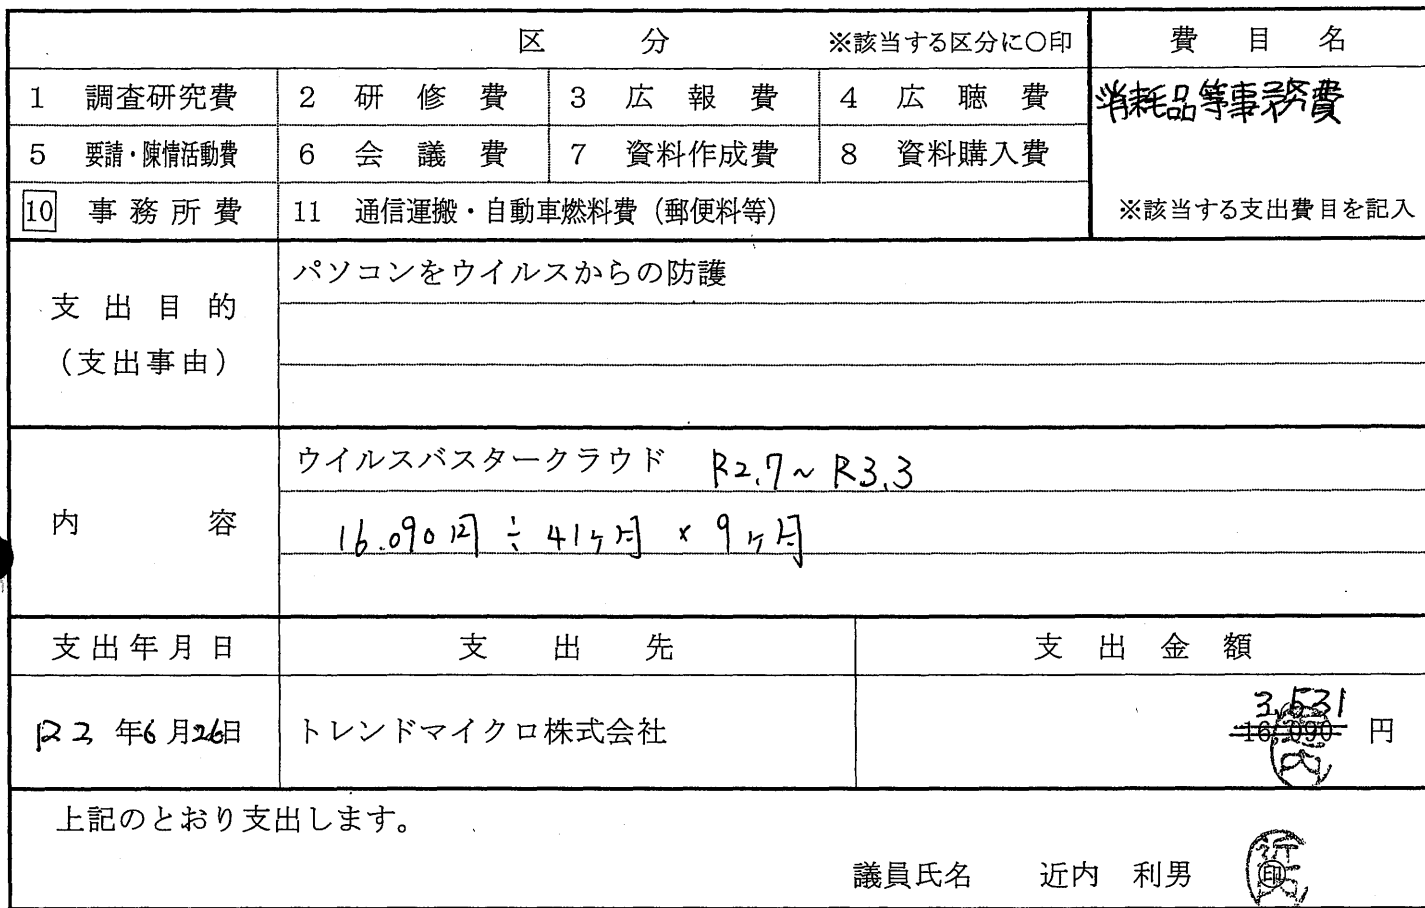 区 分 ※該当する区分に〇印 費目名
1 調査研究費 2 研修費 3 広報費 4 広聴費 消耗品等事務費
5 要請・陳情活動費 6 会議費 7 資料作成費 8 資料購入費
10 事務所費 11 通信運搬・自動車燃料費（郵便料等） ※該当する支出費目を記入
支出目的
（支出事由）
パソコンをウイルスからの防護
内容
ウイルスバスタークラウド R2.7～R3.3
16.090円÷41ヶ月×9ヶ月
支出年月日 支出先 支出金額
3,531
R2年6月26日 トレンドマイクロ株式会社 16,090 円
上記のとおり支出します。
議員氏名 近内 利男 印